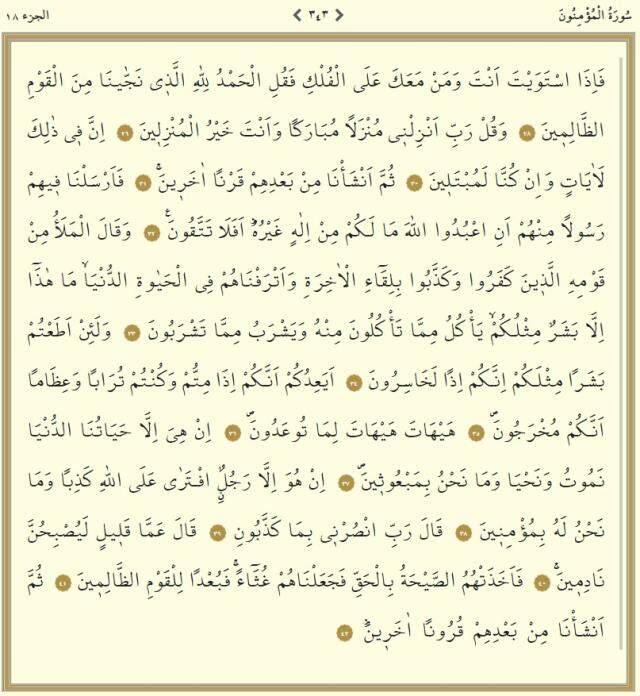 سُورَةُ الْمُؤْمِنُونَ ❮ ٣٤٣ ❯ الجزء ١٨
فَاِذَا اسْتَوَيْتَ اَنْتَ وَمَنْ مَعَكَ عَلَى الْفُلْكِ فَقُلِ الْحَمْدُ لِلّٰهِ الَّذ۪ي نَجّٰينَا مِنَ الْقَوْمِ
الظَّالِم۪ينَ ﴿٢٨﴾ وَقُلْ رَبِّ اَنْزِلْن۪ي مُنْزَلًا مُبَارَكًا وَاَنْتَ خَيْرُ الْمُنْزِل۪ينَ ﴿٢٩﴾ اِنَّ ف۪ي ذٰلِكَ
لَاٰيَاتٍ وَاِنْ كُنَّا لَمُبْتَل۪ينَ ﴿٣٠﴾ ثُمَّ اَنْشَأْنَا مِنْ بَعْدِهِمْ قَرْنًا اٰخَر۪ينَۚ ﴿٣١﴾ فَاَرْسَلْنَا ف۪يهِمْ
رَسُولًا مِنْهُمْ اَنِ اعْبُدُوا اللّٰهَ مَا لَكُمْ مِنْ اِلٰهٍ غَيْرُهُۜ اَفَلَا تَتَّقُونَ۟ ﴿٣٢﴾ وَقَالَ الْمَلَأُ مِنْ
قَوْمِهِ الَّذ۪ينَ كَفَرُوا وَكَذَّبُوا بِلِقَٓاءِ الْاٰخِرَةِ وَاَتْرَفْنَاهُمْ فِي الْحَيٰوةِ الدُّنْيَاۙ مَا هٰذَٓا
اِلَّا بَشَرٌ مِثْلُكُمْۙ يَأْكُلُ مِمَّا تَأْكُلُونَ مِنْهُ وَيَشْرَبُ مِمَّا تَشْرَبُونَ ﴿٣٣﴾ وَلَئِنْ اَطَعْتُمْ
بَشَرًا مِثْلَكُمْ اِنَّكُمْ اِذًا لَخَاسِرُونَ ﴿٣٤﴾ اَيَعِدُكُمْ اَنَّكُمْ اِذَا مِتُّمْ وَكُنْتُمْ تُرَابًا وَعِظَامًا
اَنَّكُمْ مُخْرَجُونَۖ ﴿٣٥﴾ هَيْهَاتَ هَيْهَاتَ لِمَا تُوعَدُونَۖ ﴿٣٦﴾ اِنْ هِيَ اِلَّا حَيَاتُنَا الدُّنْيَا
نَمُوتُ وَنَحْيَا وَمَا نَحْنُ بِمَبْعُوث۪ينَۖ ﴿٣٧﴾ اِنْ هُوَ اِلَّا رَجُلٌۨ افْتَرٰى عَلَى اللّٰهِ كَذِبًا وَمَا
نَحْنُ لَهُ بِمُؤْمِن۪ينَ ﴿٣٨﴾ قَالَ رَبِّ انْصُرْن۪ي بِمَا كَذَّبُونِ ﴿٣٩﴾ قَالَ عَمَّا قَل۪يلٍ لَيُصْبِحُنَّ
نَادِم۪ينَۚ ﴿٤٠﴾ فَاَخَذَتْهُمُ الصَّيْحَةُ بِالْحَقِّ فَجَعَلْنَاهُمْ غُثَٓاءًۚ فَبُعْدًا لِلْقَوْمِ الظَّالِم۪ينَ ﴿٤١﴾ ثُمَّ
اَنْشَأْنَا مِنْ بَعْدِهِمْ قُرُونًا اٰخَر۪ينَۜ ﴿٤٢﴾